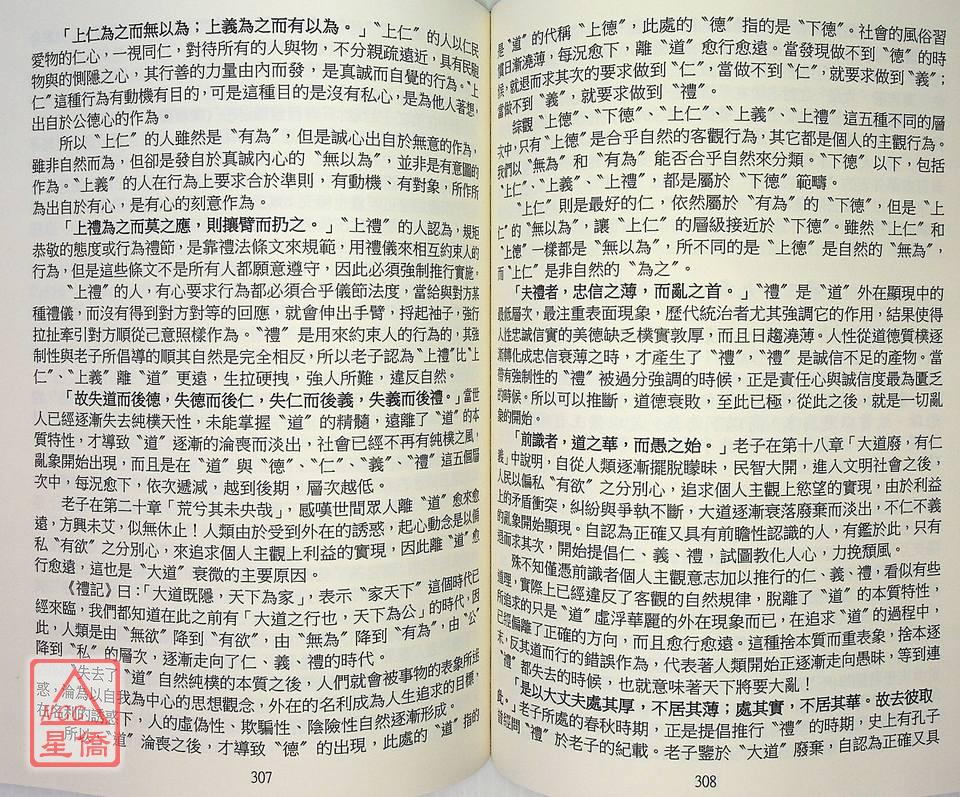 「上仁為之而無以為；上義為之而有以為。」〝上仁〞的人以仁民
愛物的仁心，一視同仁，對待所有的人與物，不分親疏遠近，具有民胞
物與的惻隱之心，其行善的力量由內而發，是真誠而自覺的行為。〝上
仁〞這種行為有動機有目的，可是這種目的是沒有私心，是為他人著想，
出自於公德心的作為。
所以〝上仁〞的人雖然是〝有為〞，但是誠心出自於無意的作為，
雖非自然而為，但卻是發自於真誠內心的〝無以為〞，並非是有意圖的
作為。〝上義〞的人在行為上要求合於準則，有動機、有對象，所作所
為出自於有心，是有心的刻意作為。
「上禮為之而莫之應，則攘臂而扔之。」〝上禮〞的人認為，規矩
恭敬的態度或行為禮節，是靠禮法條文來規範，用禮儀來相互約束人的
行為，但是這些條文不是所有人都願意遵守，因此必須強制推行實施。
〝上禮〞的人，有心要求行為都必須合乎儀節法度，當給與對方某
種禮儀，而沒有得到對方對等的回應，就會伸出手臂，捋起袖子，強行
拉扯牽引對方順從己意照樣作為。〝禮〞是用來約束人的行為的，其強
制性與老子所倡導的順其自然是完全相反，所以老子認為〝上禮〞比〝上
仁〞、〝上義〞離〝道〞更遠，生拉硬拽，強人所難，違反自然。
「故失道而後德，失德而後仁，失仁而後義，失義而後禮。」當世
人已經逐漸失去純樸天性，未能掌握〝道〞的精髓，遠離了〝道〞的本
質特性，才導致〝道〞逐漸的淪喪而淡出，社會已經不再有純樸之風，
亂象開始出現，而且是在〝道〞與〝德〞、〝仁〞、〝義〞、〝禮〞這五個層
次中，每況愈下，依次遞減，越到後期，層次越低。
老子在第二十章「荒兮其未央哉」，感嘆世間眾人離〝道〞愈來愈
遠，方興未艾，似無休止！人類由於受到外在的誘惑，起心動念是以偏
私〝有欲〞之分別心，來追求個人主觀上利益的實現，因此離〝道〞愈
行愈遠，這也是〝大道〞衰微的主要原因。
《禮記》曰：「大道既隱，天下為家」，表示〝家天下〞這個時代已
經來臨，我們都知道在此之前有「大道之行也，天下為公」的時代，因
此，人類是由〝無欲〞降到〝有欲〞，由〝無為〞降到〝有為〞，由〝公〞
降到〝私〞的層次，逐漸走向了仁、義、禮的時代。
失去了〝道〞自然純樸的本質之後，人們就會被事物的表象所迷
惑，淪為以自我為中心的思想觀念，外在的名利成為人生追求的目標，
在名利的誘惑下，人的虛偽性、欺騙性、陰險性自然逐漸形成。
所以〝道〞淪喪之後，才導致〝德〞的出現，此處的〝道〞指的
307
是〝道〞的代稱〝上德〞，此處的〝德〞指的是〝下德〞。社會的風俗習
慣日漸澆薄，每況愈下，離〝道〞愈行愈遠。當發現做不到〝德〞的時
候，就退而求其次的要求做到〝仁〞，當做不到〝仁〞，就要求做到〝義〞；
當做不到〝義〞，就要求做到〝禮〞。
綜觀〝上德〞、〝下德〞、〝上仁〞、〝上義〞、〝上禮〞這五種不同的層
次中，只有〝上德〞是合乎自然的客觀行為，其它都是個人的主觀行為。
我們以〝無為〞和〝有為〞能否合乎自然來分類。〝下德〞以下，包括
〝上仁〞、〝上義〞、〝上禮〞，都是屬於〝下德〞範疇。
〝上仁〞則是最好的仁，依然屬於〝有為〞的〝下德〞，但是〝上
仁〞的〝無以為〞，讓〝上仁〞的層級接近於〝下德〞。雖然〝上仁〞和
〝上德〞一樣都是〝無以為〞，所不同的是〝上德〞是自然的〝無為〞，
而〝上仁〞是非自然的〝為之〞。
「夫禮者，忠信之薄，而亂之首。」〝禮〞是〝道〞外在顯現中的
最低層次，最注重表面現象，歷代統治者尤其強調它的作用，結果使得
人性忠誠信實的美德缺乏樸實敦厚，而且日趨澆薄。人性從道德質樸逐
漸轉化成忠信衰薄之時，才產生了〝禮〞，〝禮〞是誠信不足的產物。當
帶有強制性的〝禮〞被過分強調的時候，正是責任心與誠信度最為匱乏
的時候。所以可以推斷，道德衰敗，至此已極，從此之後，就是一切亂
象的開始。
「前識者，道之華，而愚之始。」老子在第十八章「大道廢，有仁
義」中說明，自從人類逐漸擺脫矇昧，民智大開，進入文明社會之後，
人民以偏私〝有欲〞之分別心，追求個人主觀上慾望的實現，由於利益
上的矛盾衝突，糾紛與爭執不斷，大道逐漸衰落廢棄而淡出，不仁不義
的亂象開始顯現。自認為正確又具有前瞻性認識的人，有鑑於此，只有
退而求其次，開始提倡仁、義、禮，試圖教化人心，力挽頹風。
殊不知僅憑前識者個人主觀意志加以推行的仁、義、禮，看似有些
道理，實際上已經違反了客觀的自然規律，脫離了〝道〞的本質特性，
所追求的只是〝道〞虛浮華麗的外在現象而已，在追求〝道〞的過程中，
已經偏離了正確的方向，而且愈行愈遠。這種捨本質而重表象，捨本逐
末，反其道而行的錯誤作為，代表著人類開始正逐漸走向愚昧，等到連
〝禮〞都失去的時候，也就意味著天下將要大亂！
「是以大丈夫處其厚，不居其薄；處其實，不居其華。故去彼取
此。」老子所處的春秋時期，正是提倡推行〝禮〞的時期，史上有孔子
曾經問〝禮〞於老子的紀載。老子鑒於〝大道〞廢棄，自認為正確又具
308
星僑